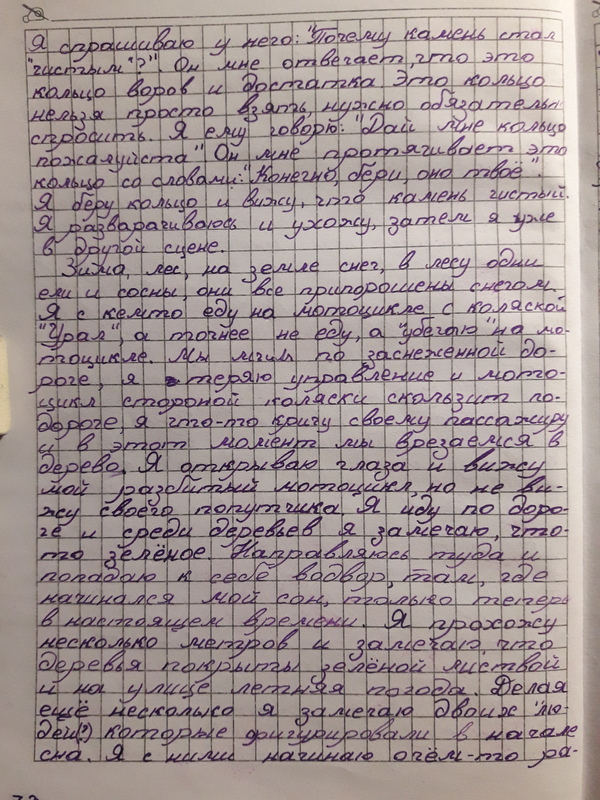 Я спрашиваю у него: "Почему камень стал
"чистым"?". Он мне отвечает, что это
кольцо воров и достатка. Это кольцо
нельзя просто взять, нужно обязательн
спросить. Я ему говорю: "Дай мне кольцо
пожалуйста" Он мне протягивает это
кольцо со словами: "Конечно, бери, оно твоё".
Я беру кольцо и вижу, что камень чистый.
Я разварачиваюсь и ухожу, затем я уже
в другой сцене.
Зима, лес, на земле снег, в лесу одни
ели и сосны, они все припорошены снегом.
Я с кемто еду на мотоцикле с коляской
"Урал", а точнее не еду, а "убегаю" на мо-
тоцикле. Мы мчим по заснеженной до-
роге, я теряю управление и мото-
цикл стороной коляски скользит по-
дороге, я что-то кричу своему пассажиру
и в этот момент мы врезаемся в
дерево. Я открываю глаза и вижу
мой разбитый мотоцикл, но не ви-
жу своего попутчика. Я иду по доро-
ге и среди деревьев я замечаю, что-
то зелёное. Направляюсь туда и
попадаю к себе водвор, там, где
начинался мой сон, только теперь
в настоящем времени. Я прохожу
несколько метров и замечаю, что
деревья покрыты зелёной листвой
и на улице летняя погода. Делая
ещё несколько я замечаю двоих "лю-
дей(?) которые фигурировали в начале
сна. Я с ними начинаю очём-то ра-